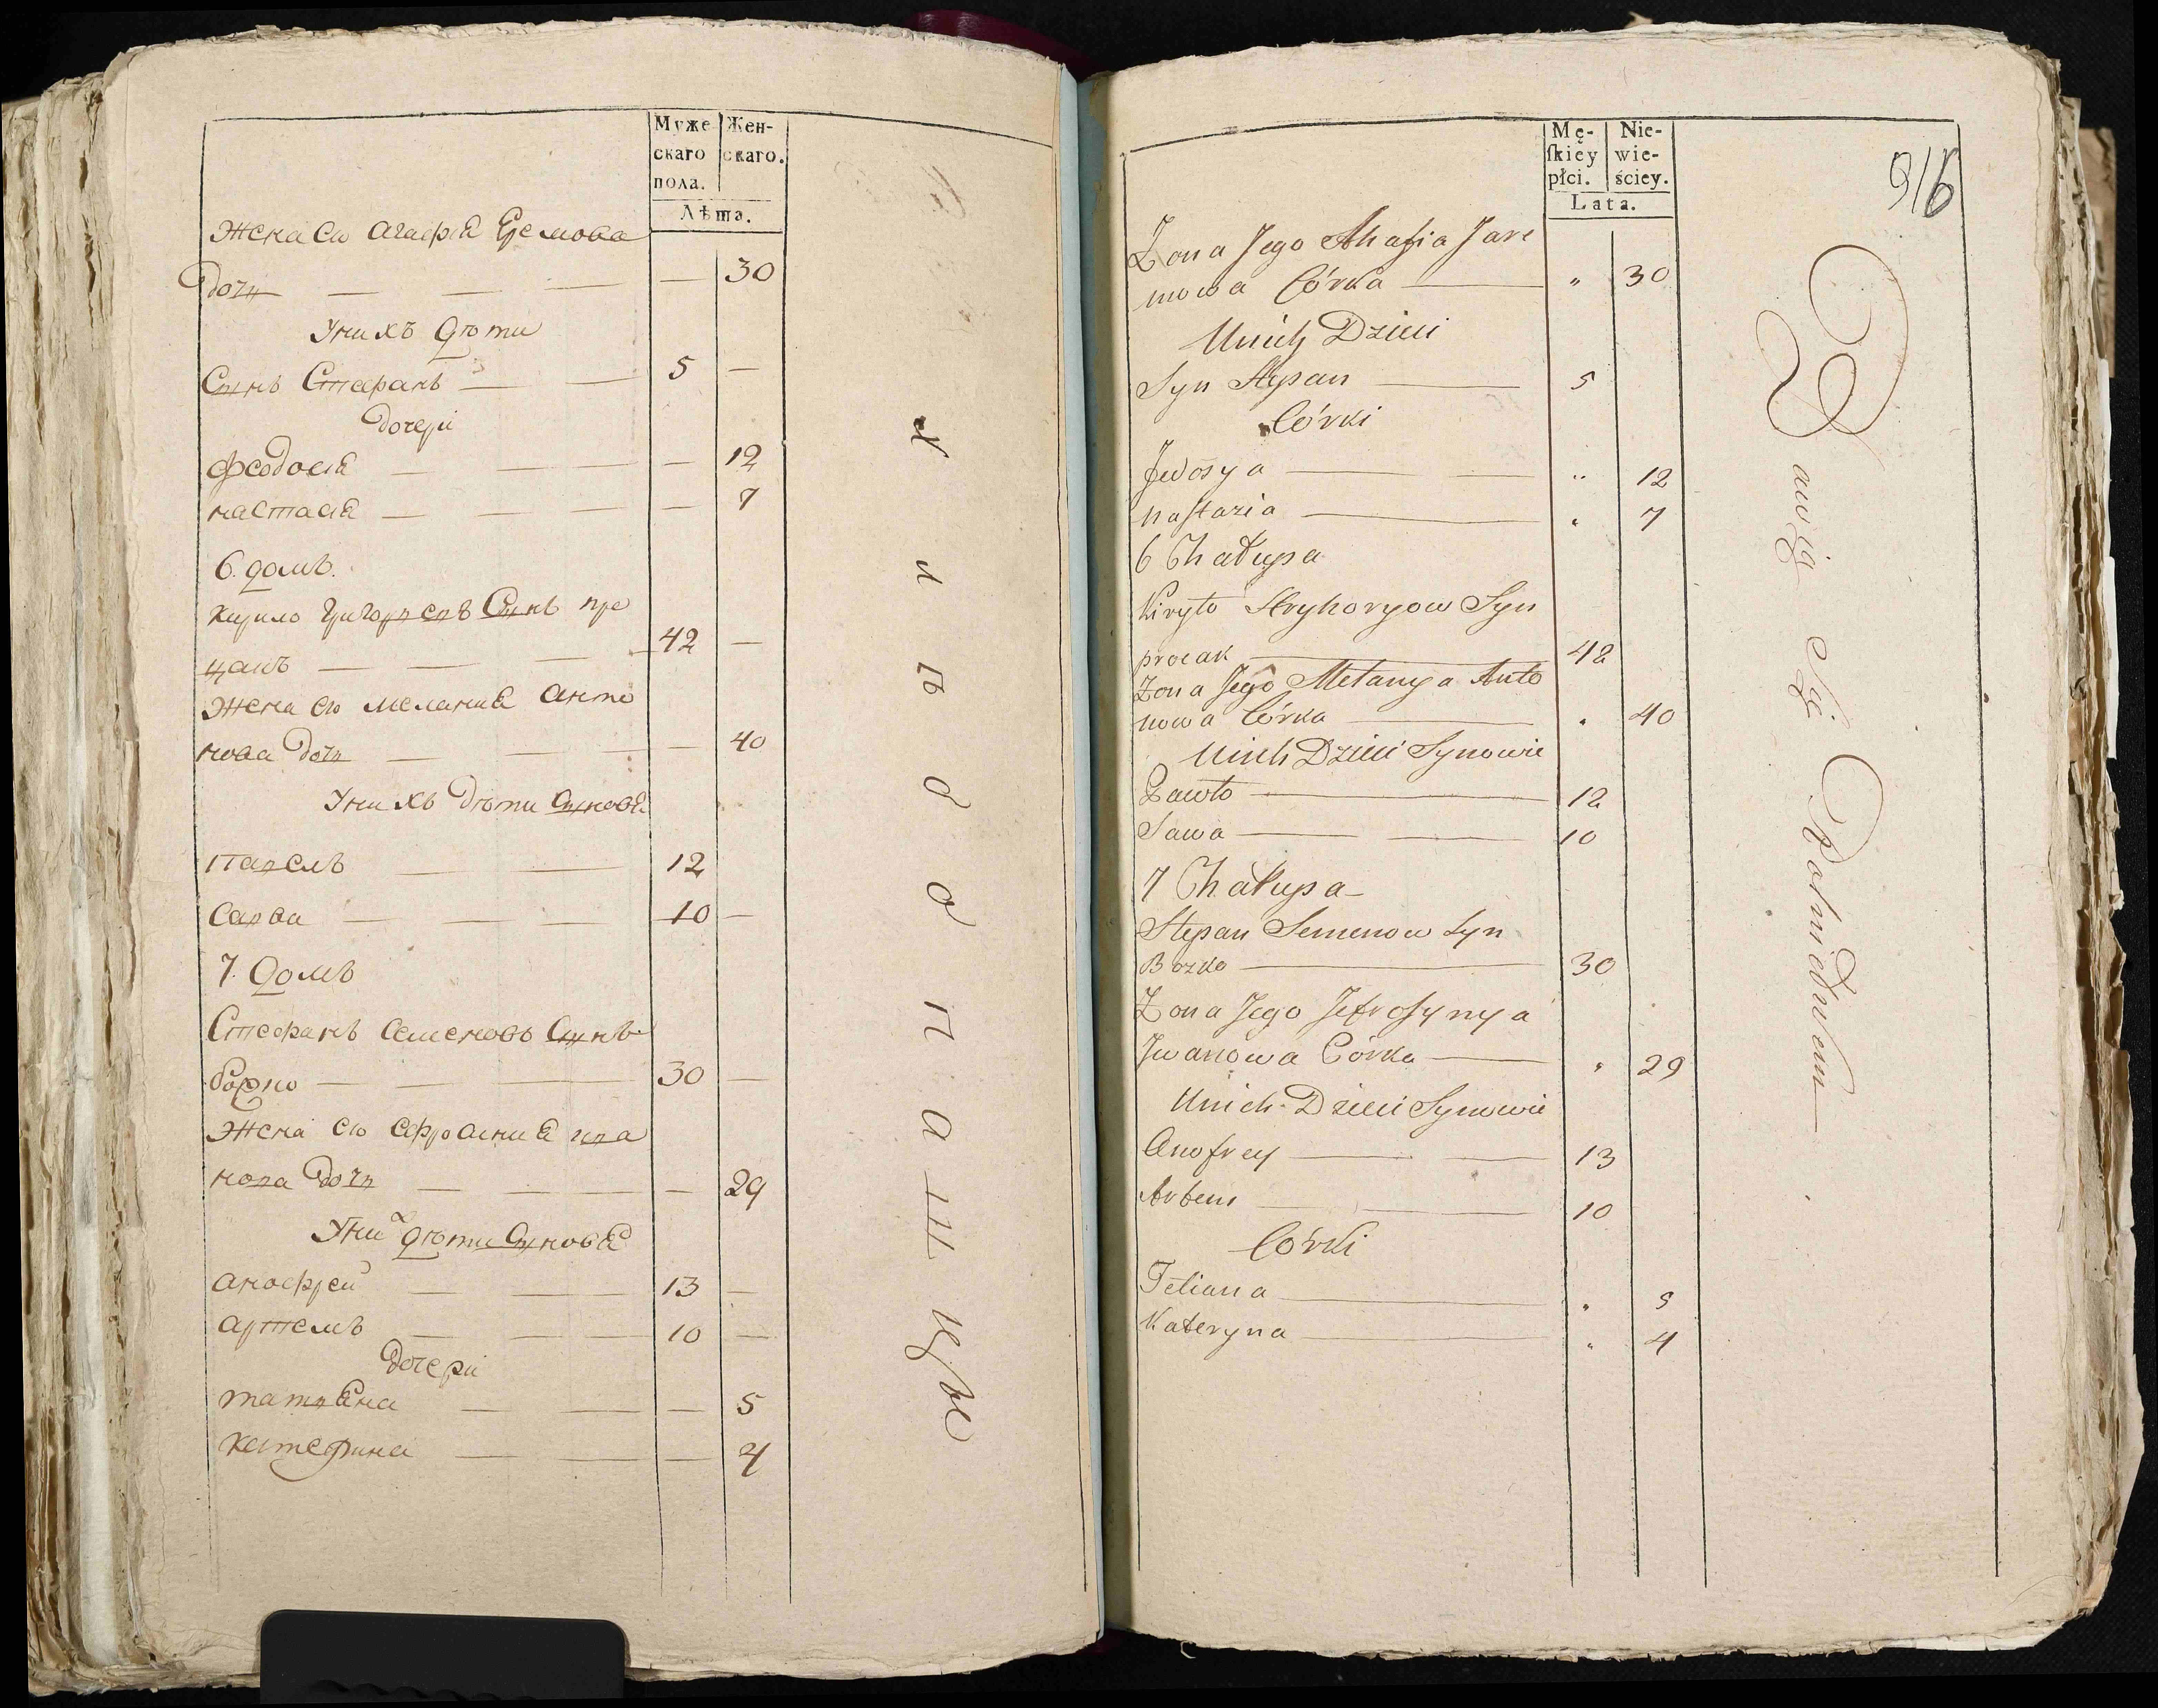 Муже
скаго
пола.
Жен-
скаго.
Лѣта.
Жена его Агафія Еремова
дочь — — — — 30
У нихъ дѣти
Сынъ Стефанъ — — 5 —
дочери
Феодосія — — — — 12
Настасія — — — — 7
6. домъ.
Кирило Григорьевъ Сынъ Про
цакъ — — — 42 —
Жена его Меланія Анто
нова дочь — — — — 40
У нихъ дѣти Сыновя
Павелъ — — 12
Савва — — — 10 —
7. домъ
Стефанъ Семеновъ Сынъ
Божко — — — 30 —
Жена его Ефросинія Ива
нова дочь — — — — 29
У них дѣти Сыновя
Анофрей — — 13 —
Артемъ — — — 10 —
дочери
Татьяна — — — 5
Катерина — — — 4
хлѣбопашцы
Mę-
ſkiey
płci.
Nie-
wie-
ściey.
Lata.
916
Żona Jego Ahafia Jare
mowa Córka — " 30
Unich Dzieci
Syn Stepan — 5
Córki
Fedosya — — " 12
Nastazia — " 7
6 Chałupa
Kiryło Hryhoryow Syn
Procak — 42
Żona Jego Mełanya Anto
nowa Córka — " 40
Unich Dzieci Synowie
Pawło — 12
Sawa — — 10
7 Chałupa
Stepan Semenow Syn
Bozko — 30
Żona Jego Jefrosynya
Jwanowa Córka — " 29
Unich Dzieci Synowie
Anofrey — — 13
Artem — — 10
Córki
Tetiana — " 5
Kateryna — " 4
Bawią Się Rolnictwem